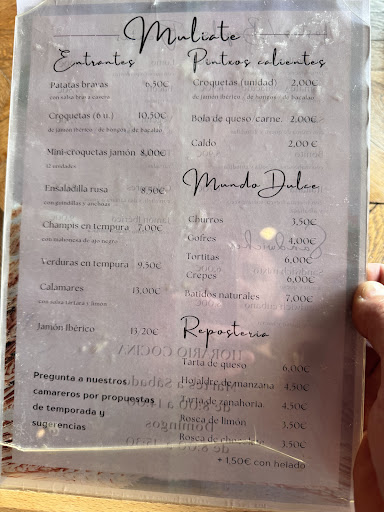 Muliate
Entrantes
Patatas bravas 6,50€
con salsa brava casera
Croquetas (6 u.) 10,50€
de jamón ibérico / de hongos / de bacalao
Mini-croquetas jamón 8,00€
12 unidades
Ensaladilla rusa 8,50€
con gambillas y anchoas
Champis en tempura 7,00€
con mahonesa de ajo negro
Verduras en tempura 9,50€
Calamares 13,00€
con salsa tártara y limón
Jamón Ibérico 13,20€
Pregunta a nuestros
camareros por propuestas
de temporada y
sugerencias
Pintxos calientes
Croquetas (unidad) 2,00€
de jamón ibérico / de hongos / de bacalao
Bola de queso/carne. 2,00€
Caldo 2,00 €
Mundo Dulce
Churros 3,50€
Gofres 4,00€
Tortitas 6,00€
Crepes 6,00€
Batidos naturales 7,00€
Repostería
Tarta de queso 6,00€
Hojaldre de manzana 4,50€
Tarta de zanahoria. 4,50€
Rosca de limón 3,50€
Rosca de chocolate 3,50€
+ 1,50€ con helado
HORARIO COCINA
Martes a sábado
Domingos